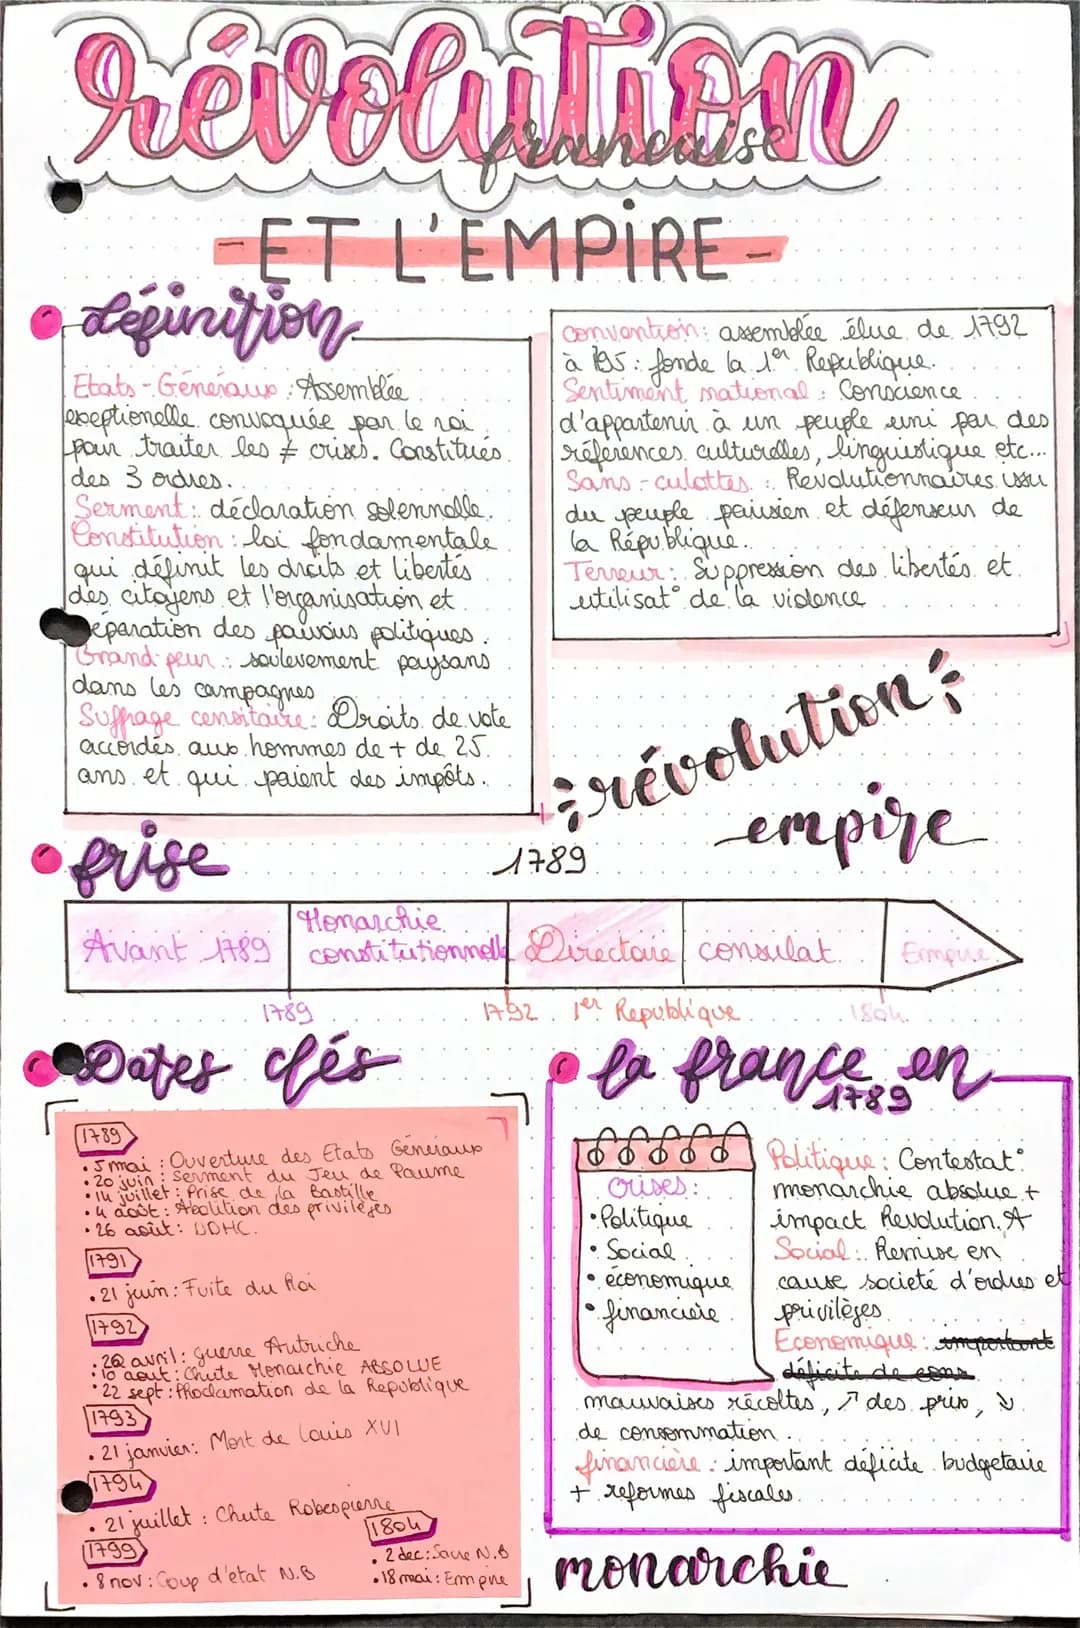 révolution
française
-ET L'EMPIRE-
définition
Etats-Généraux : Assemblée
exeptionelle convoquée par le roi
pour traiter les ≠ crises. Constitués
des 3 ordres.
Serment : déclaration solennelle.
Constitution : loi fondamentale
qui définit les droits et libertés
des citoyens et l'organisation et
séparation des pouvoirs politiques.
Grand-peur : soulevement paysans
dans les campagnes
Suffrage censitaire : Droits de vote
accordés aux hommes de + de 25
ans et qui paient des impôts.
convention : assemblée élue de 1792
à 195 : fonde la 1er Republique.
Sentiment national : Conscience
d'appartenir à un peuple uni par des
références culturelles, linguistique etc...
Sans-culottes : Revolutionnaires issu
du peuple parisien et défenseur de
la République.
Terreur : Suppression des libertés et
utilisat° de la violence
révolution
empire
frise
1789
Avant 1789
Monarchie
constitutionnelle
Directoire
consulat
Empire
1789
1792
1er Republique
1804
Dates clés
1789
• 5 mai : Ouverture des Etats Généraux
• 20 juin : serment du Jeu de Paume
• 14 juillet : Prise de la Bastille
• 4 août : Abolition des privilèges
• 26 août : DDHC.
1791
• 21 juin : Fuite du Roi
1792
• 20 avril : guerre Autriche
• 10 aout : Chute Monarchie ABSOLUE
• 22 sept : PRoclamation de la Republique
1793
• 21 janvier : Mort de Louis XVI
1794
• 21 juillet : Chute Robespierre
1799
• 8 nov : Coup d'état N.B
1804
• 2 dec : Sacre N.B
• 18 mai : Empire
la france en
1789
crises :
• Politique
• Social
• économique
• financière
Politique : Contestat°
monarchie absolue +
impact Revolution. A
Social : Remise en
cause societé d'ordres et
privilèges
Economique : important
déficite de cons
mauvaises récoltes, ↗ des prix, ↘
de consommation.
financière : important déficite budgetaire
+ reformes fiscales.
monarchie